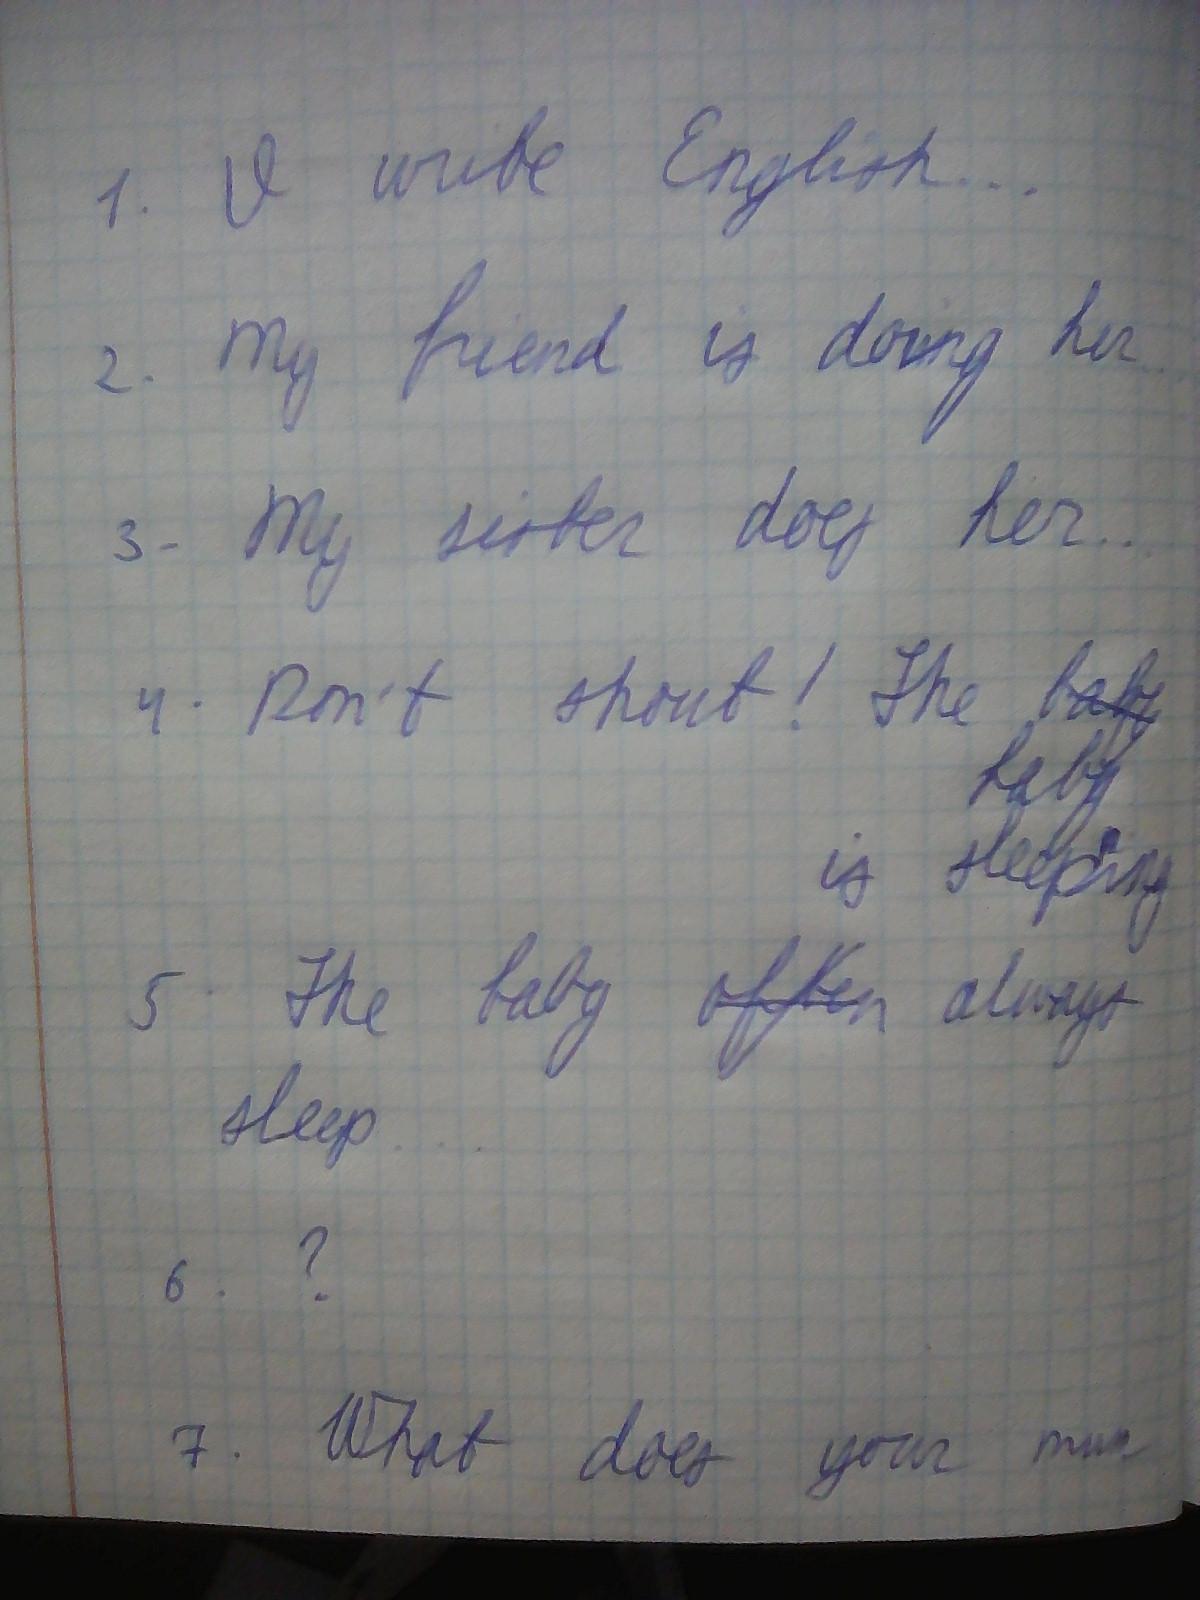 1. I write English...
2. My friend is doing her...
3- My sister does her...
4. Don't shout! The baby
baby
is sleeping
5. The baby often always
sleep....
6. ?
7. What does your mum